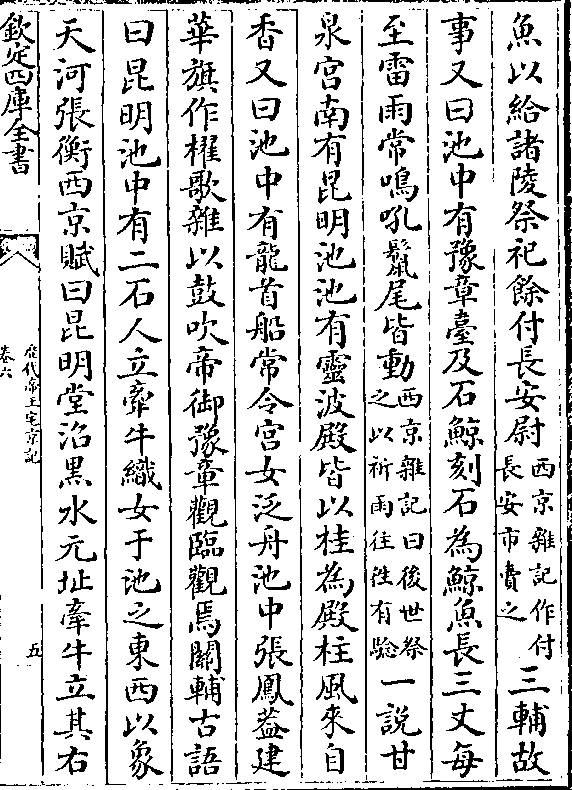 魚以給諸陵祭祀餘付長安尉西京雜記作付長安市賣之三輔故
事又曰池中有豫章臺及石鯨刻石為鯨魚長三丈每
至雷雨常鳴吼鬛尾皆動西京雜記曰後世祭之以祈雨往往有驗一說甘
泉宫南有昆明池池有靈波殿皆以桂為殿柱風來自
香又曰池中有龍首船常令宫女泛舟池中張鳳葢建
華旗作櫂歌雜以鼓吹帝御豫章觀臨觀焉關輔古語
曰昆明池中有二石人立牽牛織女于池之東西以象
天河張衡西京賦曰昆明堂沼黒水元址牽牛立其右
欽定四庫全書
歴代帝王宅京記
卷六
五